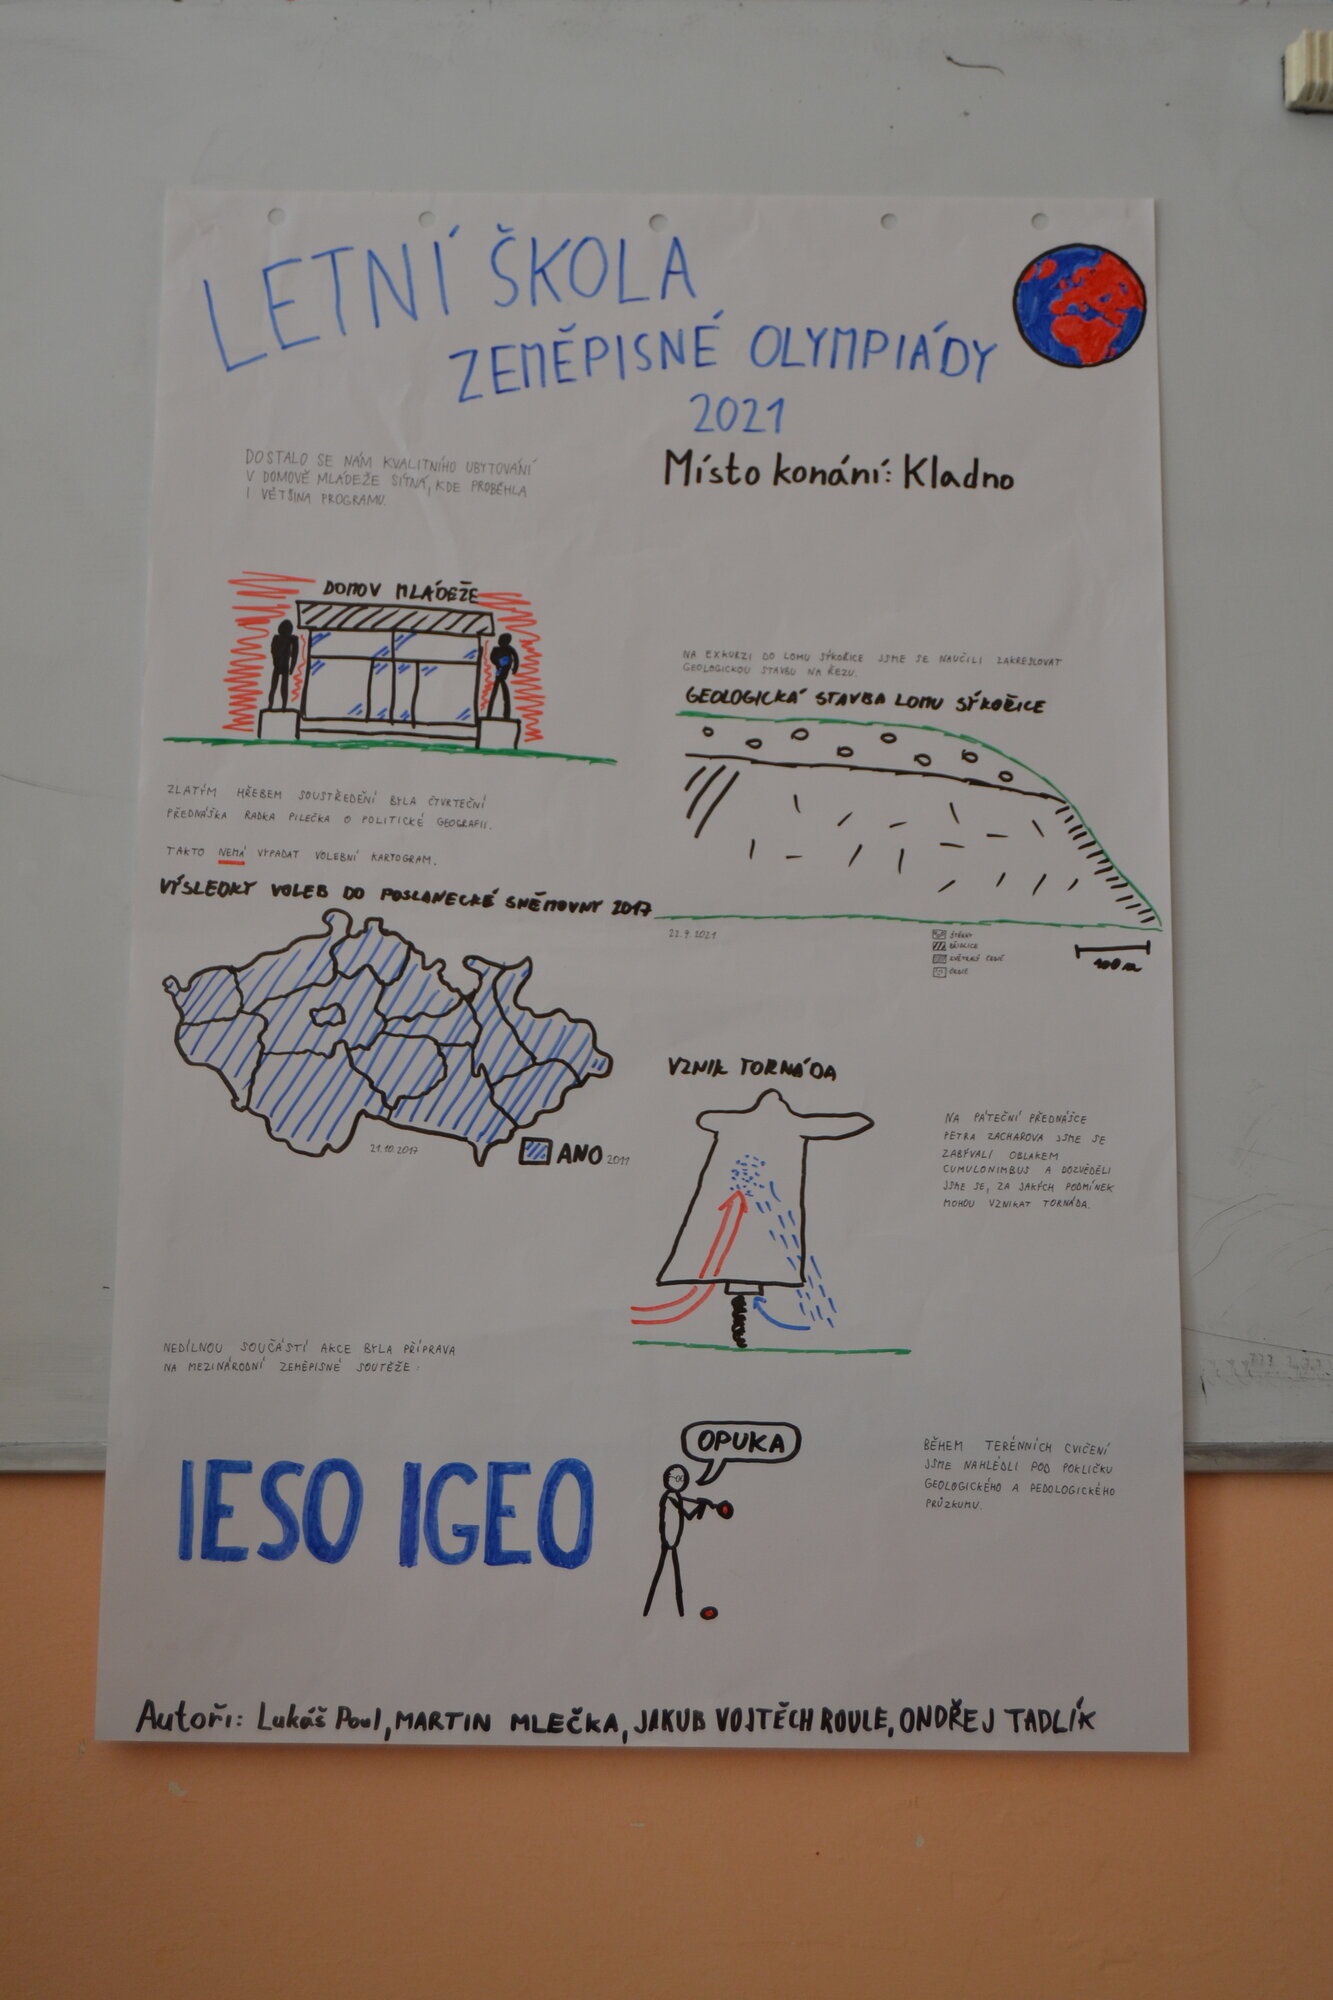 LETNÍ ŠKOLA
ZEMĚPISNÉ OLYMPIÁDY
2021
Místo konání: Kladno
DOSTALO SE NÁM KVALITNÍHO UBYTOVÁNÍ
V DOMOVĚ MLÁDEŽE SÍTNÁ, KDE PROBĚHLA
I VĚTŠINA PROGRAMU.
DOMOV MLÁDEŽE
ZLATÝM HŘEBEM SOUSTŘEDĚNÍ BYLA ČTVRTEČNÍ
PŘEDNÁŠKA RADKA PILEČKA O POLITICKÉ GEOGRAFII.
TAKTO NEMÁ VYPADAT VOLEBNÍ KARTOGRAM.
VÝSLEDKY VOLEB DO POSLANECKÉ SNĚMOVNY 2017
21.10.2017
ANO 2011
NA EXKURZI DO LOMU SÝKOŘICE JSME SE NAUČILI ZAKRESLOVAT
GEOLOGICKOU STAVBU NA ŘEZU.
GEOLOGICKÁ STAVBA LOMU SÝKOŘICE
22.9.2021
ŠTĚRKY
BŘIDLICE
ZVĚTRALÝ ČEDIČ
ČEDIČ
100 m
VZNIK TORNÁDA
NA PÁTEČNÍ PŘEDNÁŠCE
PETRA ZACHAROVA JSME SE
ZABÝVALI OBLAKEM
CUMULONIMBUS A DOZVĚDĚLI
JSME SE, ZA JAKÝCH PODMÍNEK
MOHOU VZNIKAT TORNÁDA.
NEDÍLNOU SOUČÁSTÍ AKCE BYLA PŘÍPRAVA
NA MEZINÁRODNÍ ZEMĚPISNÉ SOUTĚŽE:
IESO IGEO
OPUKA
BĚHEM TERÉNNÍCH CVIČENÍ
JSME NAHLÉDLI POD POKLIČKU
GEOLOGICKÉHO A PEDOLOGICKÉHO
PRŮZKUMU.
Autoři: Lukáš Poul, MARTIN MLEČKA, JAKUB VOJTĚCH ROULE, ONDŘEJ TADLÍK